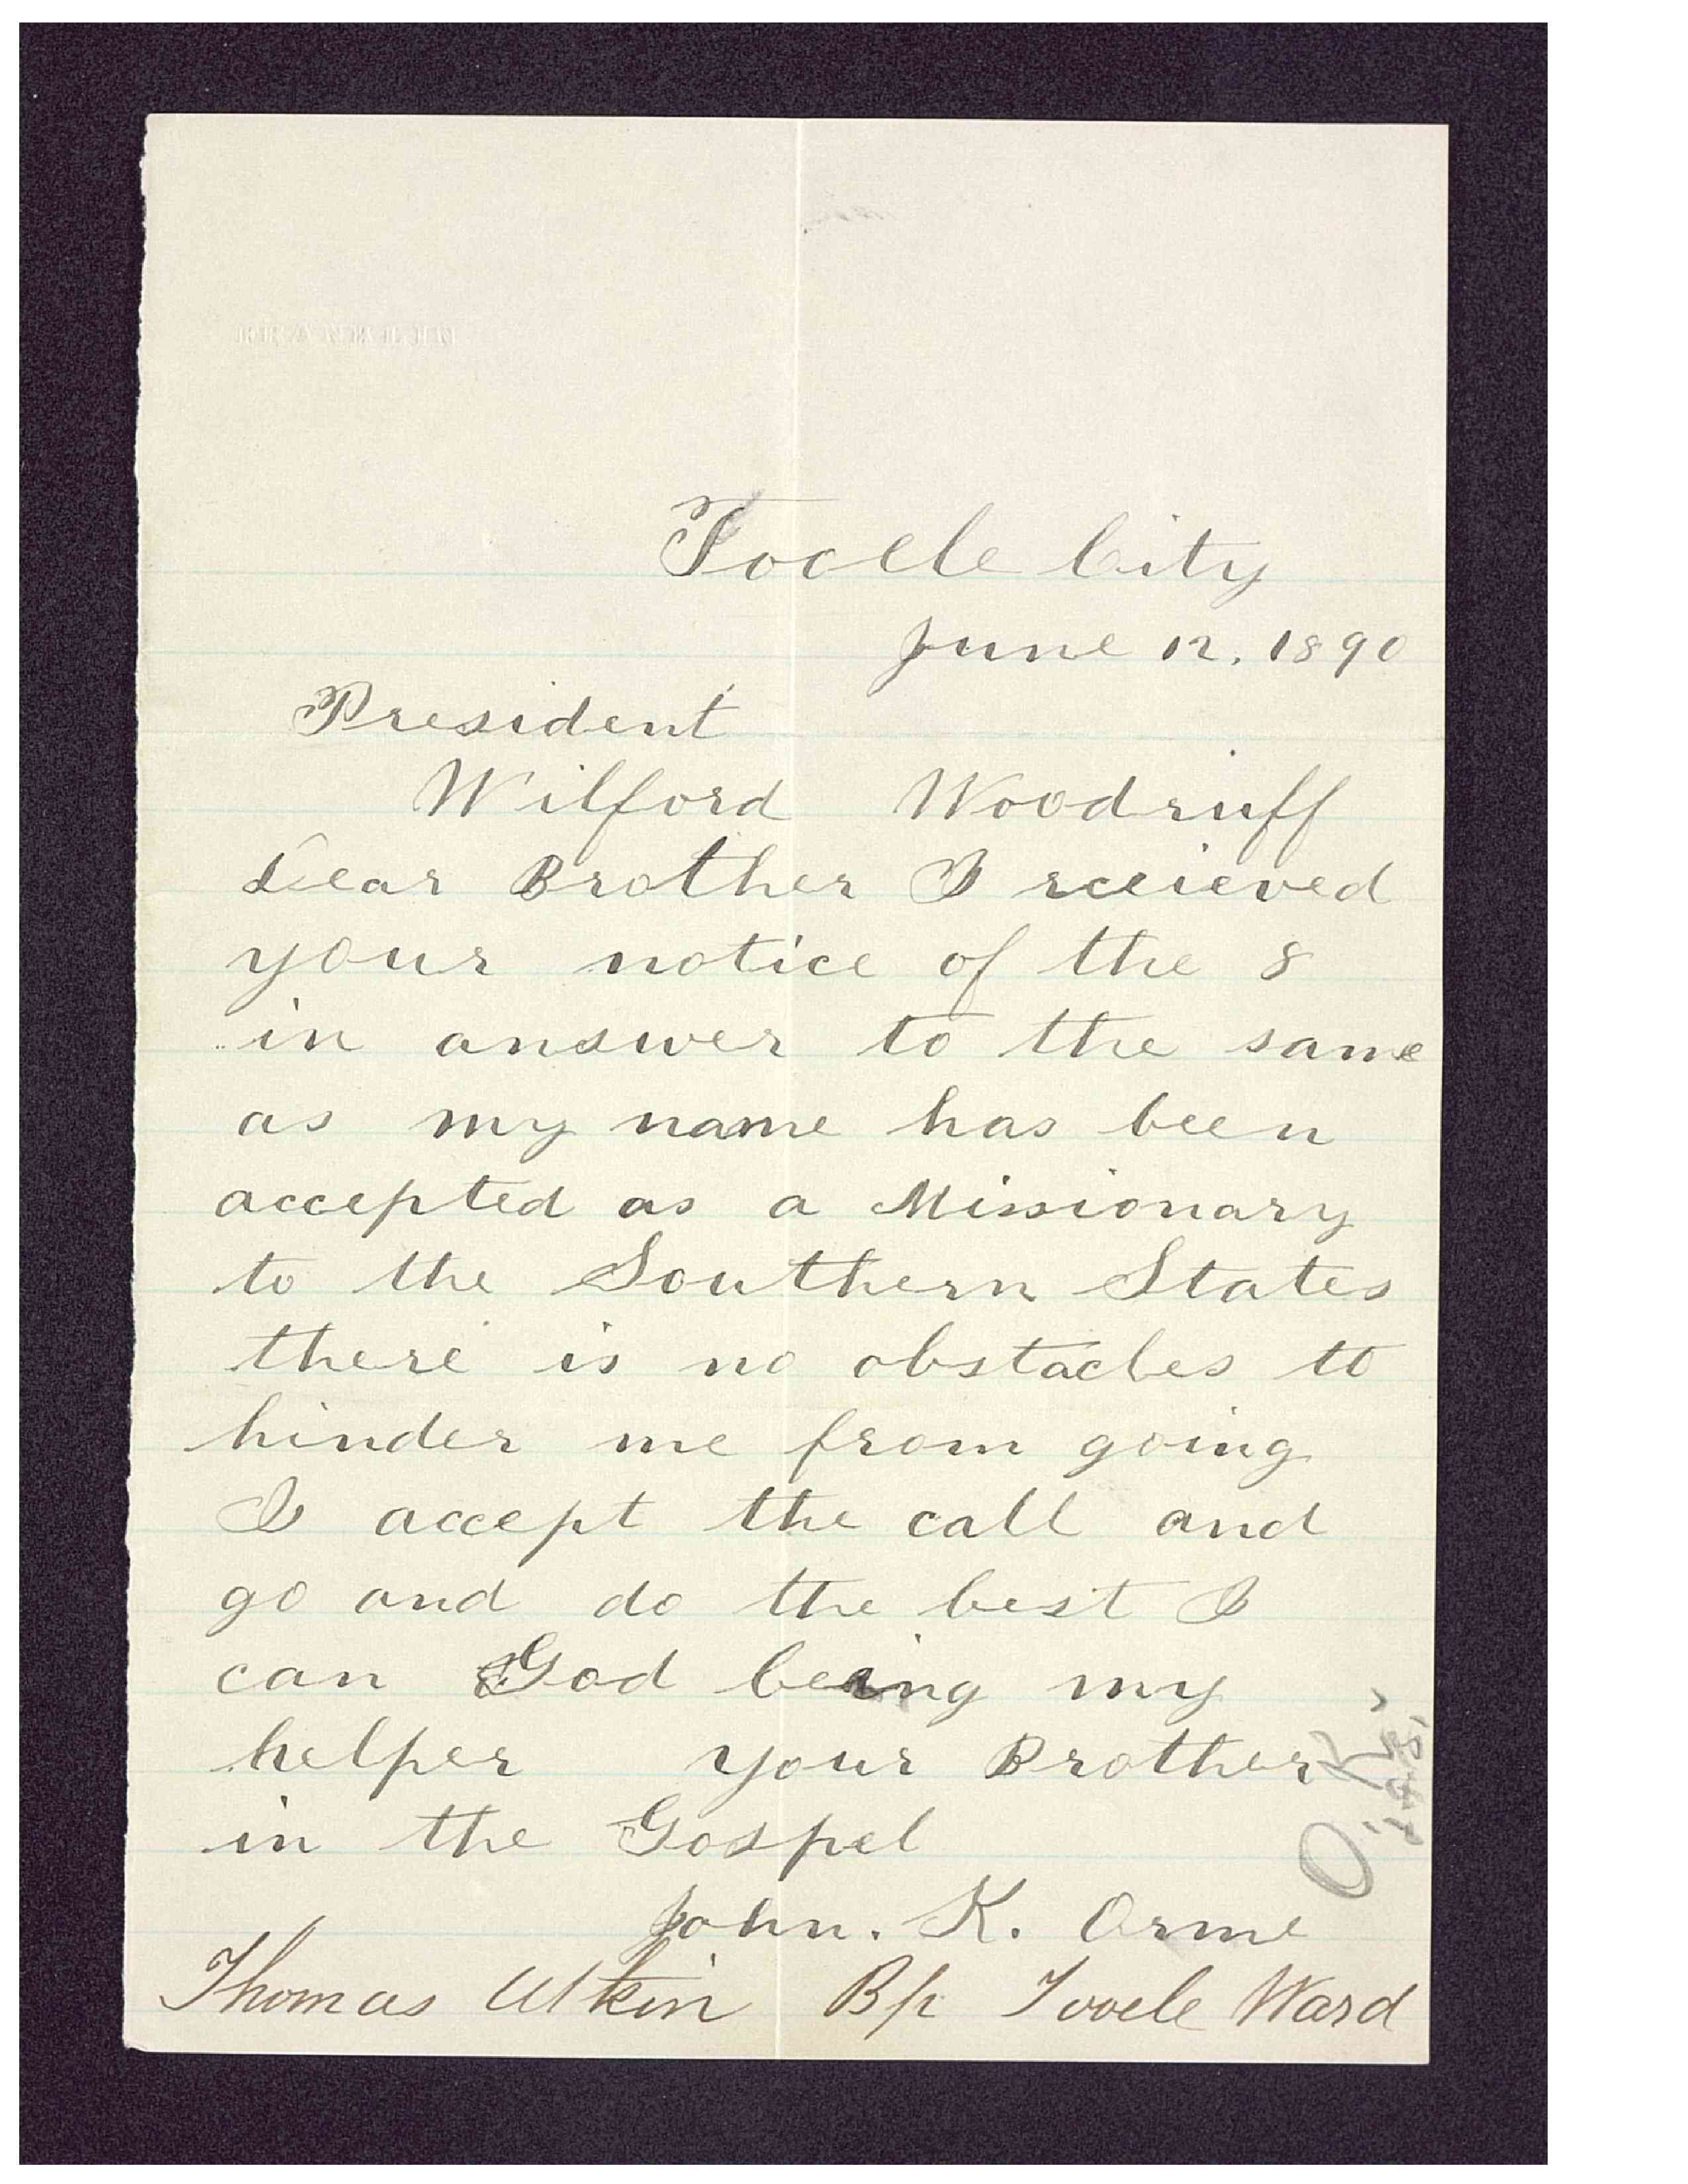 Tooele City
June 12. 1890
President
Wilford Woodruff
Dear Brother I rceieved
your notice of the 8
in answer to the same
as my name has been
accepted as a Missionary
to the Southern States
there is no obstacles to
hinder me from going
I accept the call and
go and do the best I
can God being my
helper your Brother
in the Gospel
John. K. Orme
Thomas Atkin Bp Tooele Ward
O.K.